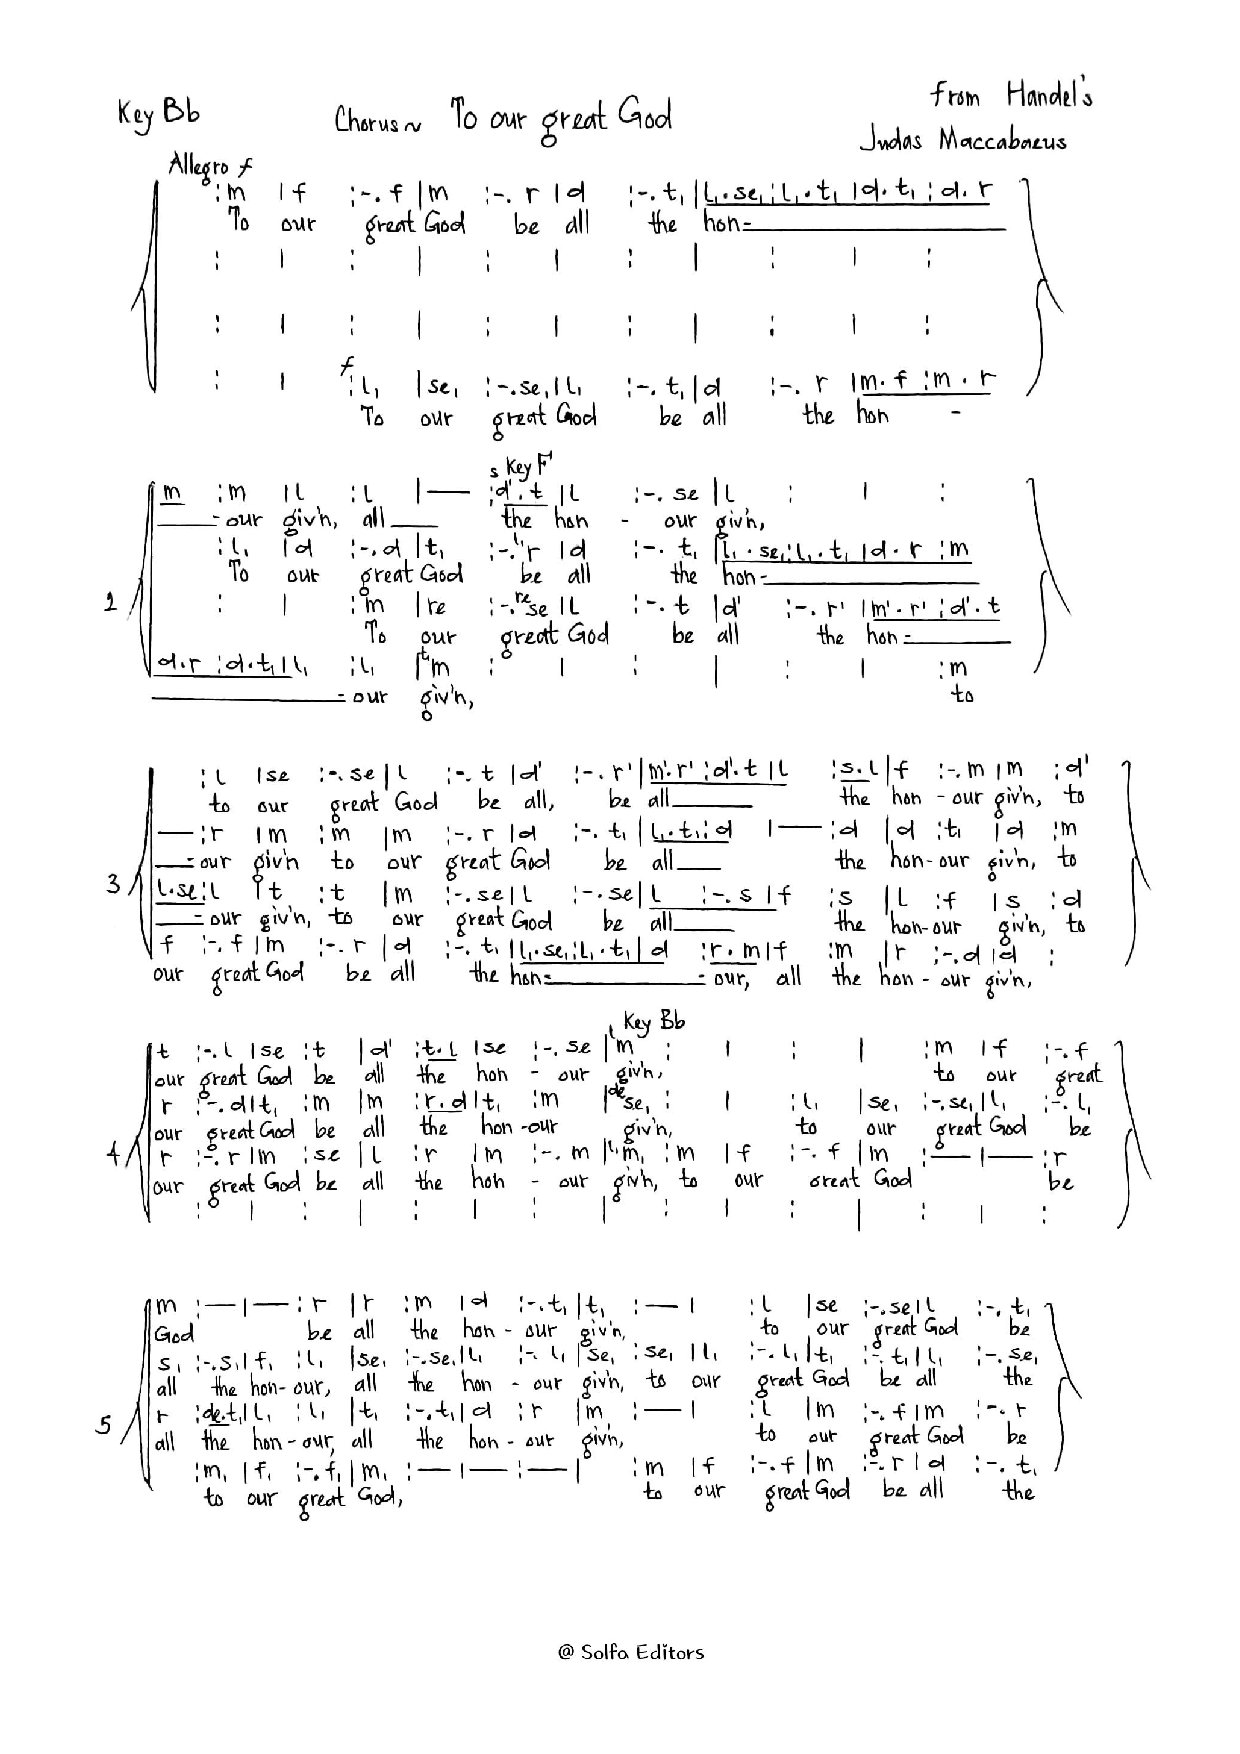 Key Bb
Chorus~ To our great God
from Handel's
Judas Maccabaeus
Allegro f
:m |f :-. f |m :-. r |d :-. t, |l,.se,:l,.t, |d.t,:d.r
To our great God be all the hon-
: | : | : | : | : | :
: | : | : | : | : | :
f
: | :l, |se, :-.se,|l, :-. t,|d :-. r |m.f :m.r
To our great God be all the hon -
s Key F
m :m |l :l |— :d'.t |l :-. se |l : | :
- our giv'n, all the hon - our giv'n,
:l, |d :-.d |t, :-.l,r |d :-. t, |l,.se,:l,.t, |d.r :m
To our great God be all the hon-
2
: | :m |re :-.re se |l :-. t |d' :-. r' |m'.r' :d'.t
To our great God be all the hon-
d.r :d.t,|l, :l, |t,m : | : | : | :m
- our giv'n, to
:l |se :-. se |l :-. t |d' :-. r' |m'.r' :d'.t |l :s.l |f :-.m |m :d'
to our great God be all, be all the hon - our giv'n, to
— :r |m :m |m :-. r |d :-. t, |l,.t,:d |— :d |d :t, |d :m
- our giv'n to our great God be all the hon-our giv'n, to
3
l.se:l |t :t |m :-.se|l :-.se|l :-. s |f :s |l :f |s :d
- our giv'n, to our great God be all the hon-our giv'n, to
f :-. f |m :-. r |d :-. t, |l,.se,:l,.t, |d :r.m|f :m |r :-.d |d :
our great God be all the hon- - our, all the hon - our giv'n,
l Key Bb
t :-. l |se :t |d' :t.l |se :-. se |m : | : | :m |f :-.f
our great God be all the hon - our giv'n, to our great
r :-.d|t, :m |m :r.d|t, :m |de se, : | :l, |se, :-.se,|l, :-. l,
our great God be all the hon -our giv'n, to our great God be
4
r :-. r |m :se |l :r |m :-. m |l,m, :m |f :-. f |m :— |— :r
our great God be all the hon - our giv'n, to our great God be
: | : | : | : | : | : | : | :
m :— |— :r |r :m |d :-.t,|t, :— | :l |se :-.se|l :-. t,
God be all the hon - our giv'n, to our great God be
s, :-.s,|f, :l, |se, :-.se,|l, :-. l, |se, :se, |l, :-. l,|t, :-. t,|l, :-.se,
all the hon-our, all the hon - our giv'n, to our great God be all the
5
r :de.t,|l, :l, |t, :-.t,|d :r |m :— | :l |m :-. f |m :-. r
all the hon-our, all the hon - our giv'n, to our great God be
:m, |f, :-. f,|m, :— |— :— | :m |f :-. f |m :-. r |d :-. t,
to our great God, to our great God be all the
@ Solfa Editors